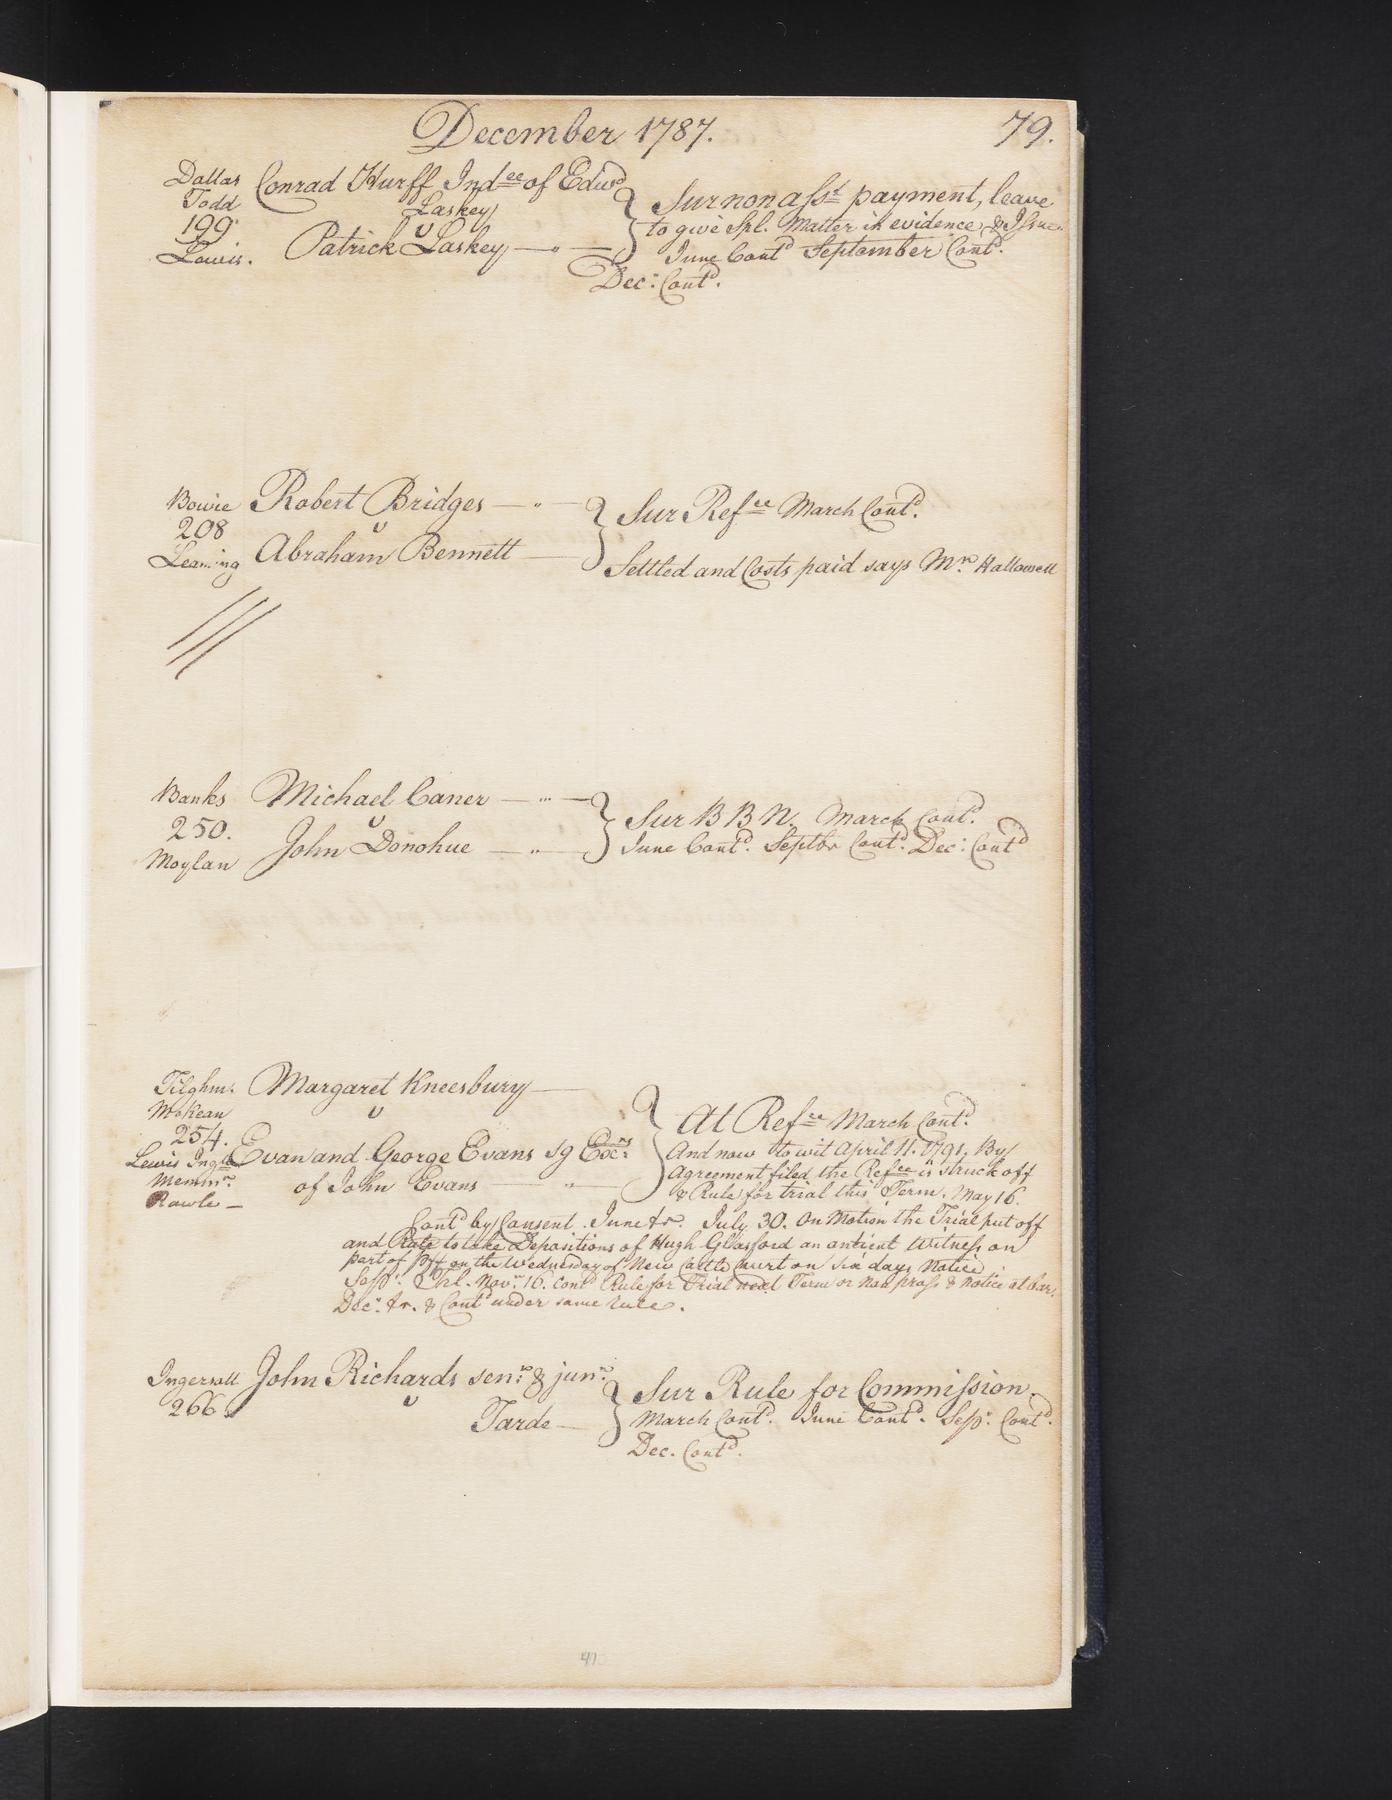 December 1787.
79.
Dallas
Todd
199
Lewis.
Conrad Hurff Indee of Edwd
Laskey
v
Patrick Laskey
Sur non asst payment, leave
to give Spl. Matter in evidence & Issue.
June Contd September Contd.
Dec: Contd.
Bowie
208
Leaming
Robert Bridges
v
Abraham Bennett
Sur Refee March Contd.
Settled and Costs paid says Mr. Hallowell
Banks
250.
Moylan
Michael Caner
v
John Donohue
Sur B B N. March Contd.
June Contd. Septbr Contd. Dec: Contd
Tilghm.
McKean
254.
Lewis Ings
Memmr.
Rawle
Margaret Kneesbury
v
Evan and George Evans sg Exrs
of John Evans
At Refee March Contd.
And now to wit April 11. 1791. By
Agreement filed the Refee is struck off
& Rule for trial this Term. May 16.
Contd by Consent. June tr. July 30. On Motion the Trial put off
and Rule to take Depositions of Hugh Glassford an antient Witness on
part of Plff on the Wednesday of New Castle Court on six days Notice
Sepr. Nov. 16. Contd Rule for Trial next Term or Non pross & notice at bar.
Dec: tr. & Contd under same rule.
Ingersoll
266.
John Richards senr. & junr.
v
Tarde
Sur Rule for Commission.
March Contd. June Contd. Sepr. Contd.
Dec. Contd.
41